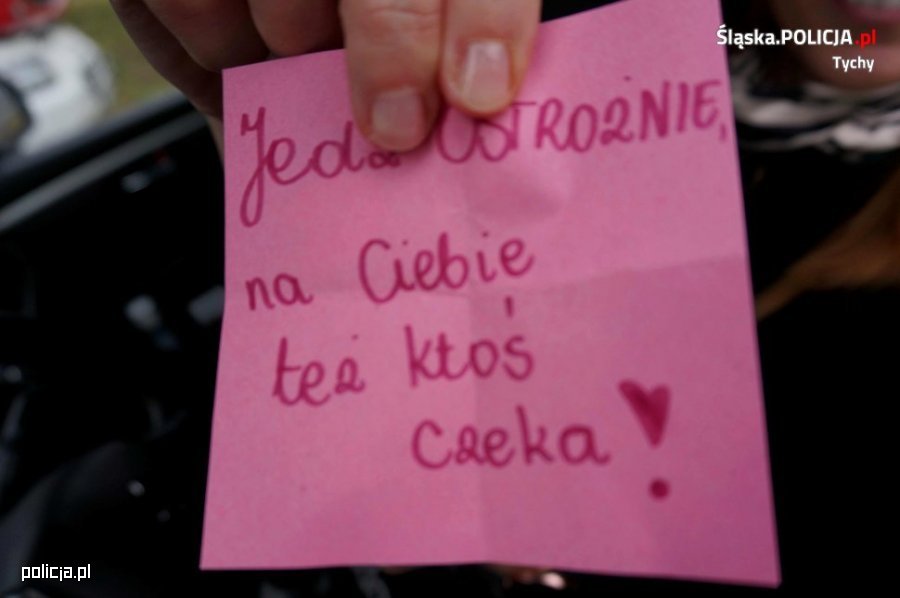 Śląska.POLICJA.pl
Tychy
Jedź OSTROŻNIE,
na Ciebie
też ktoś
czeka!
policja.pl